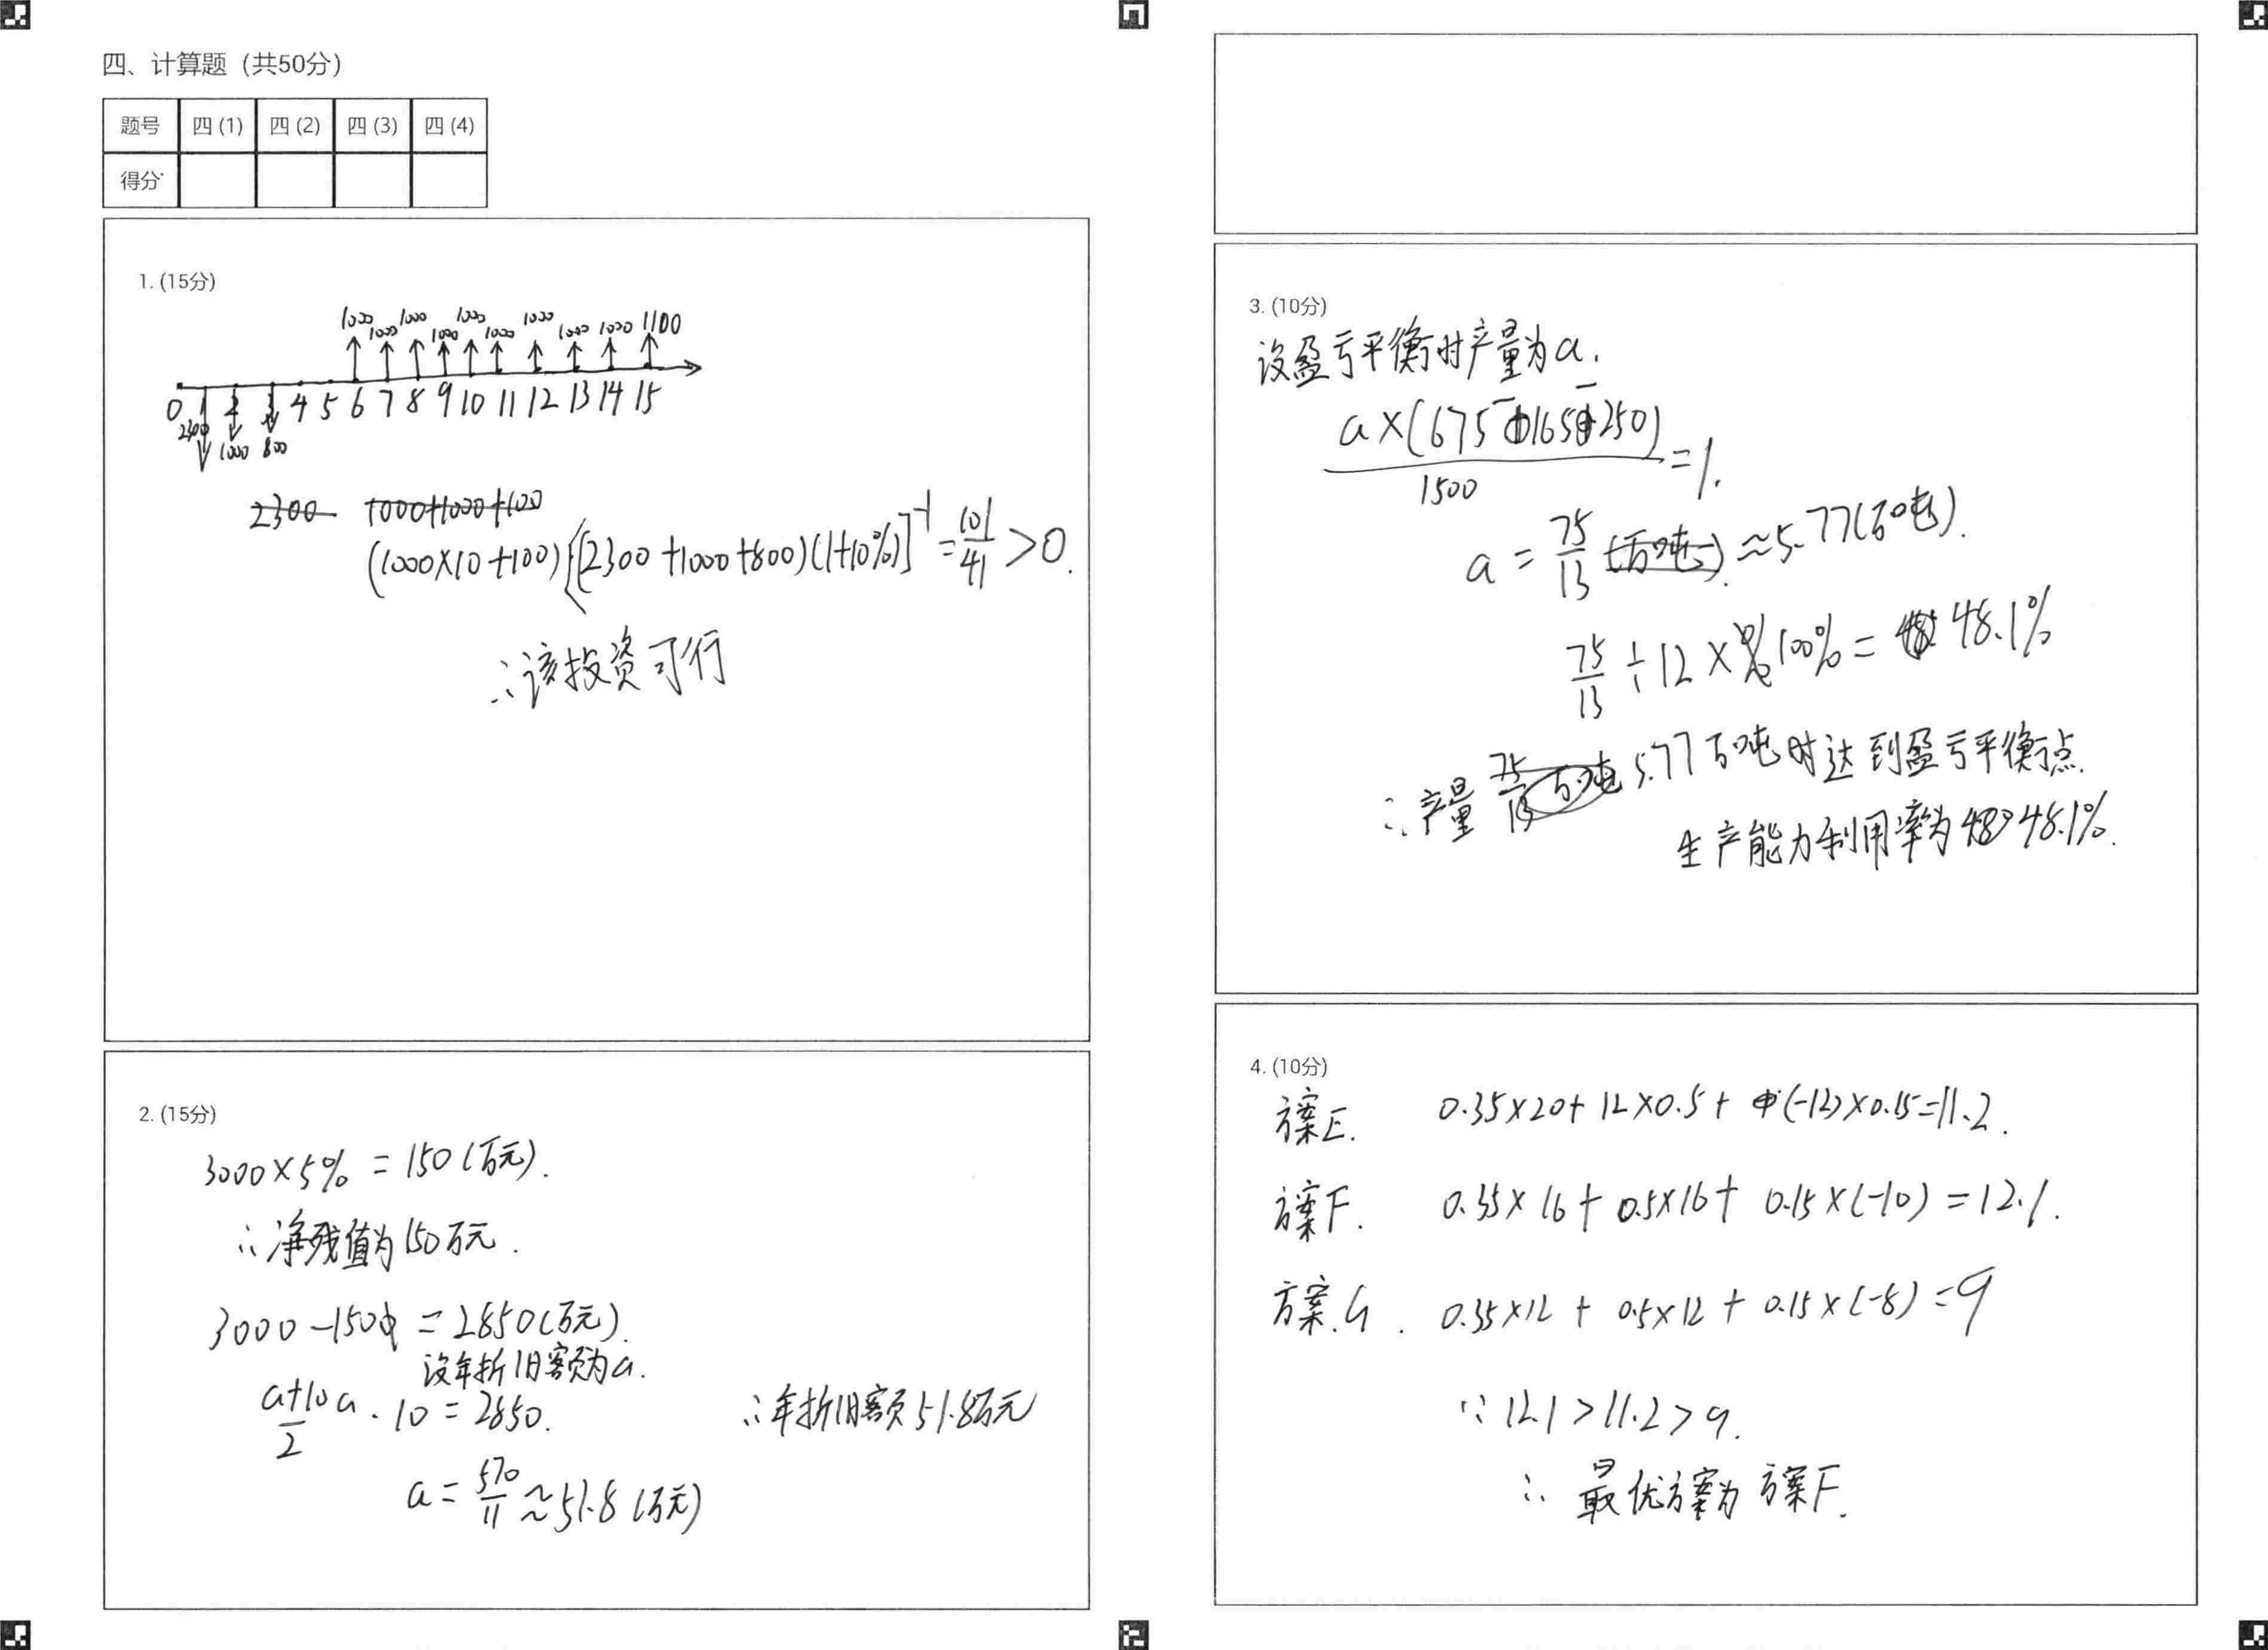 四、计算题（共50分）
题号 四 (1) 四 (2) 四 (3) 四 (4)
得分
1. (15分)
1000 1000 1000 1000 1000 1000 1000 1000 1000 1100
0 1 2 3 4 5 6 7 8 9 10 11 12 13 14 15
2300 1000 800
2300 1000+1000+100
(1000×10+100){[2300+1000+800)(1+10%)]⁻¹=101/41>0.
∴该投资可行
2. (15分)
3000×5%=150(万元).
∴净残值为150万元.
3000-150=2850(万元).
设年折旧额为a.
(a+10a)/2·10=2850.
∴年折旧额51.8万元
a=570/11≈51.8(万元)
3. (10分)
设盈亏平衡时产量为a.
a×(675-165-250)/1500=1.
a=75/13(万吨)≈5.77(万吨).
75/13÷12×100%=48.1%
∴产量75/13万吨5.77万吨时达到盈亏平衡点.
生产能力利用率为48.1%.
4. (10分)
方案E. 0.35×20+12×0.5+(-12)×0.15=11.2.
方案F. 0.35×16+0.5×16+0.15×(-10)=12.1.
方案G. 0.35×12+0.5×12+0.15×(-8)=9
∵12.1>11.2>9.
∴最优方案为方案F.